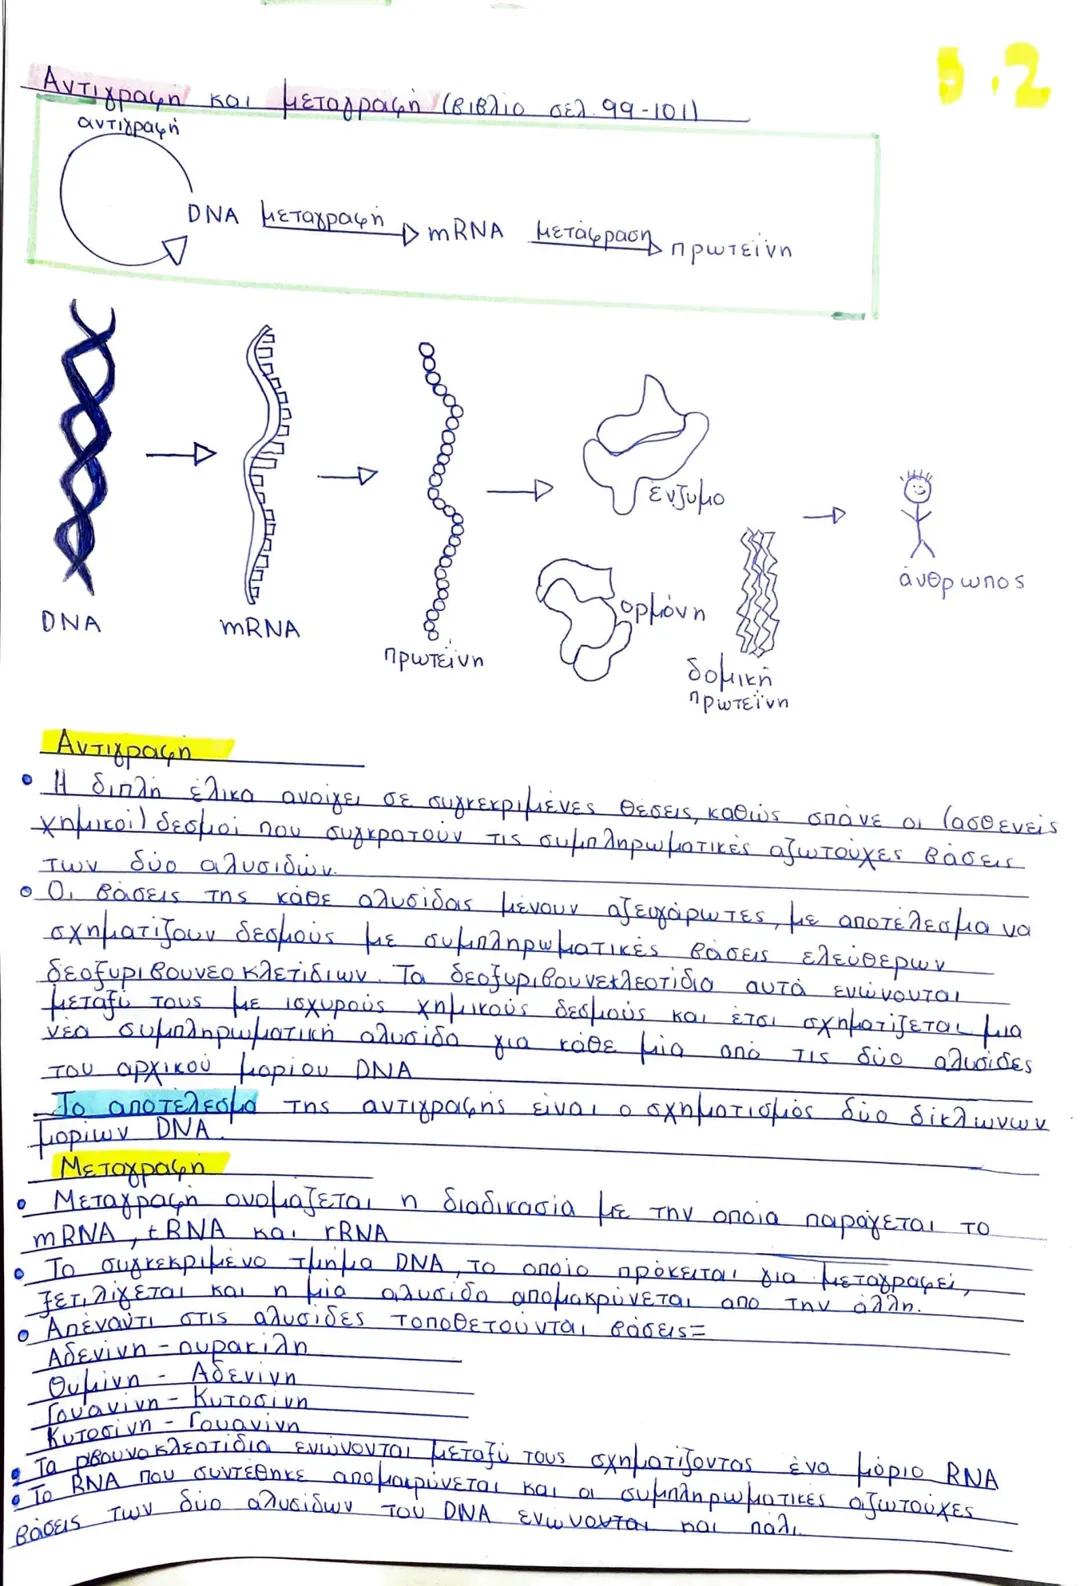 5.2
Αντιγραφή και μεταγραφή (Βιβλίο σελ. 99-101)
αντιγραφή
DNA μεταγραφή mRNA μετάφραση πρωτεΐνη
ένζυμο
άνθρωπος
ορμόνη
DNA
mRNA
πρωτεΐνη
δομική
πρωτεΐνη
Αντιγραφή
• Η διπλή έλικα ανοίγει σε συγκεκριμένες θέσεις, καθώς σπάνε οι (ασθενείς
χημικοί) δεσμοί που συγκρατούν τις συμπληρωματικές αζωτούχες βάσεις
των δύο αλυσίδων.
• Οι βάσεις της κάθε αλυσίδας μένουν αζευγάρωτες, με αποτέλεσμα να
σχηματίζουν δεσμούς με συμπληρωματικές βάσεις ελεύθερων
δεοξυριβουνεοκλετιδίων. Τα δεοξυριβουνεκλεοτίδια αυτά ενώνονται
μεταξύ τους με ισχυρούς χημικούς δεσμούς και έτσι σχηματίζεται μια
νέα συμπληρωματική αλυσίδα για κάθε μία από τις δύο αλυσίδες
του αρχικού μορίου DNA
Το αποτέλεσμα της αντιγραφής είναι ο σχηματισμός δύο δίκλωνων
μορίων DNA.
Μεταγραφή
• Μεταγραφή ονομάζεται η διαδικασία με την οποία παράγεται το
mRNA, tRNA και rRNA
• Το συγκεκριμένο τμήμα DNA, το οποίο πρόκειται για μεταγραφεί,
ξετιλίγεται και η μία αλυσίδα απομακρύνεται από την άλλη.
• Απέναντι στις αλυσίδες τοποθετούνται βάσεις=
Αδενίνη - ουρακίλη
Θυμίνη - Αδενίνη
Γουανίνη - Κυτοσίνη
Κυτοσίνη - Γουανίνη
• Τα ριβουνοκλεοτίδια ενώνονται μεταξύ τους σχηματίζοντας ένα μόριο RNA
• Το RNA που συντέθηκε απομακρύνεται και οι συμπληρωματικές αζωτούχες
βάσεις των δύο αλυσίδων του DNA ενώνονται και πάλι.